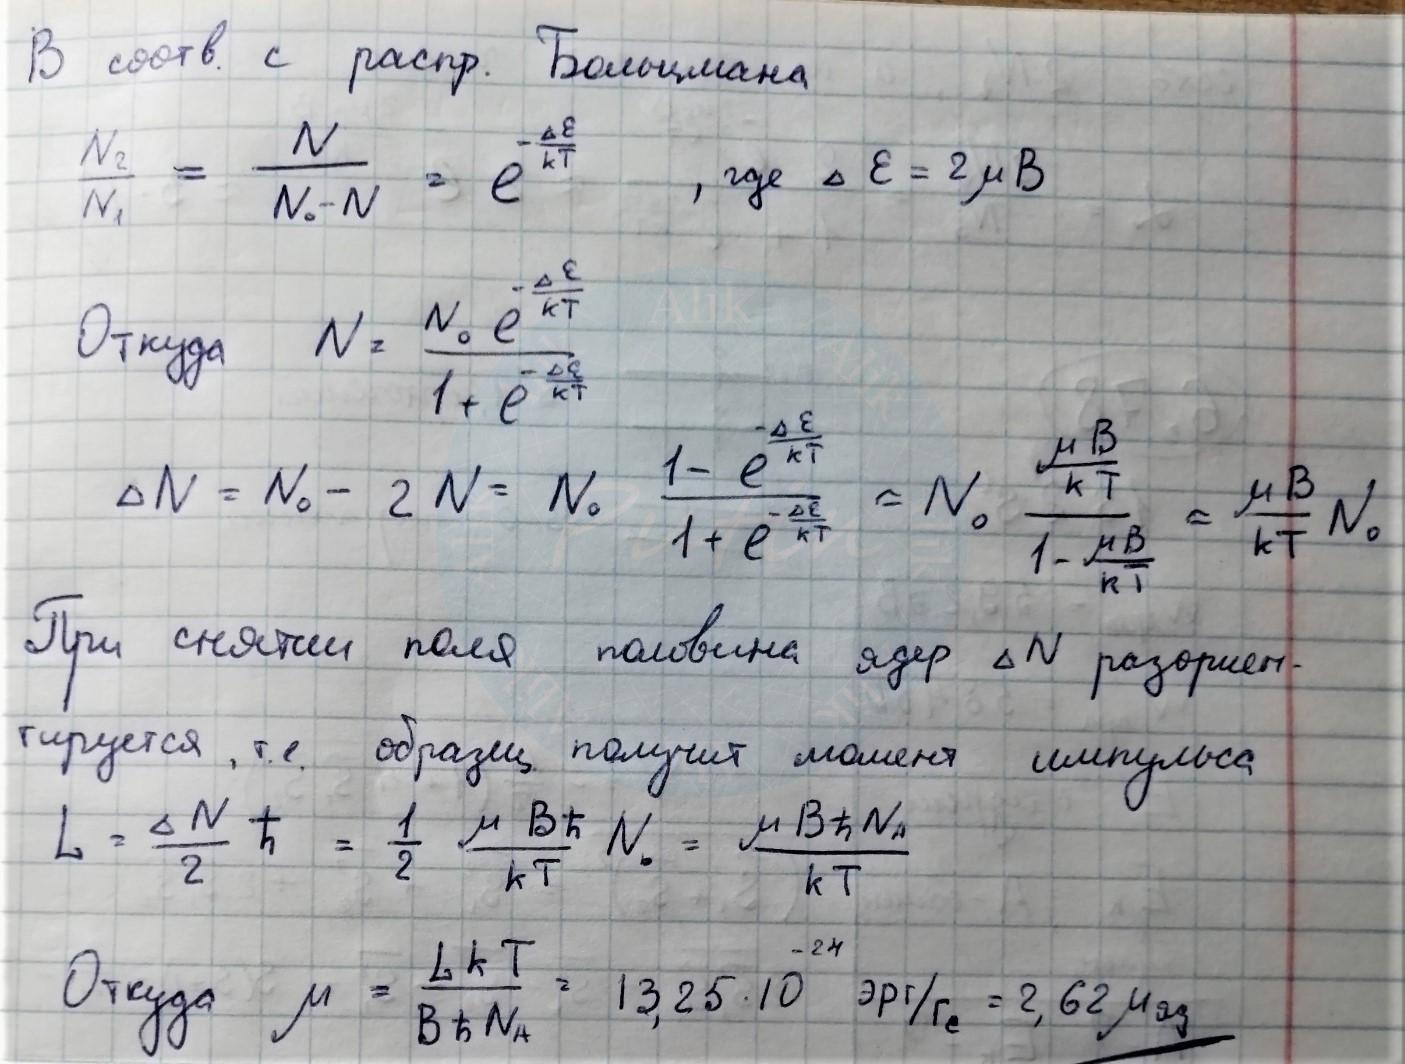 В соотв. с распр. Больцмана
N₂/N₁ = N/(N₀-N) = e^(-Δℰ/kT) , где Δℰ = 2μB
Откуда N = N₀ e^(-Δℰ/kT) / (1 + e^(-Δℰ/kT))
ΔN = N₀ - 2N = N₀ (1 - e^(-Δℰ/kT)) / (1 + e^(-Δℰ/kT)) ≈ N₀ (μB/kT) / (1 - μB/kT) ≈ μB/kT N₀
При снятии поля половина ядер ΔN разориен-
тируется, т.е. образец получит момент импульса
L = ΔN/2 ħ = 1/2 μBħ/kT N₀ = μBħN_A/kT
Откуда μ = LkT/BħN_A = 13,25·10^(-24) эрг/Гс = 2,62 μ_яд
Alik